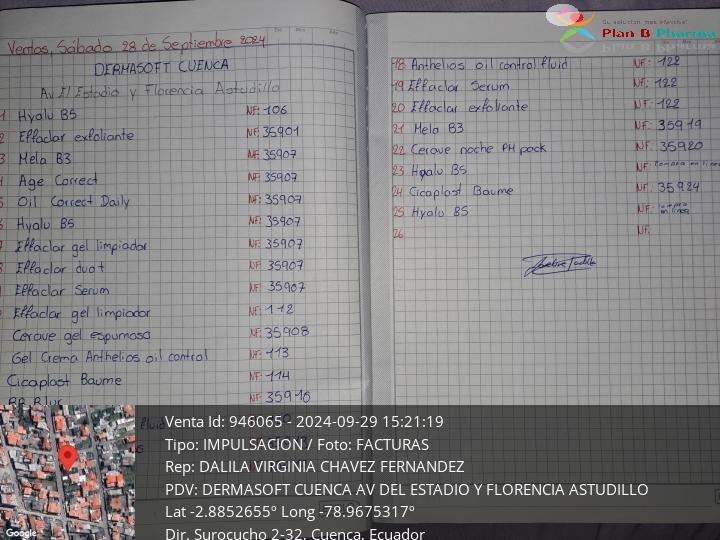 Ventas, Sábado 28 de Septiembre 2024
DERMASOFT CUENCA
Av El Estadio y Florencia Astudillo
1 Hyalu B5 NF: 106
2 Effaclar exfoliante NF: 35901
3 Mela B3 NF: 35907
Age Correct NF: 35907
Oil Correct Daily NF: 35907
Hyalu B5 NF: 35907
Effaclar gel limpiador NF: 35907
Effaclar duo+ NF: 35907
Effaclar Serum NF: 35907
Effaclar gel limpiador NF: 112
Cerave gel espumoso NF: 35908
Gel Crema Anthelios oil control NF: 113
Cicaplast Baume NF: 114
BB Blur NF: 35916
fluid
18 Anthelios oil control fluid NF: 122
19 Effaclar Serum NF: 122
20 Effaclar exfoliante NF: 122
21 Mela B3 NF: 35919
22 Cerave noche PM pack NF: 35920
23 Hyalu B5 NF: Compra en linea
24 Cicaplast Baume NF: 35924
25 Hyalu B5 NF: compra en linea
26 NF:
Su solución más efectiva!
Plan B Pharma
Venta Id: 946065 - 2024-09-29 15:21:19
Tipo: IMPULSACION / Foto: FACTURAS
Rep: DALILA VIRGINIA CHAVEZ FERNANDEZ
PDV: DERMASOFT CUENCA AV DEL ESTADIO Y FLORENCIA ASTUDILLO
Lat -2.8852655° Long -78.9675317°
Dir. Surocucho 2-32, Cuenca, Ecuador
Google